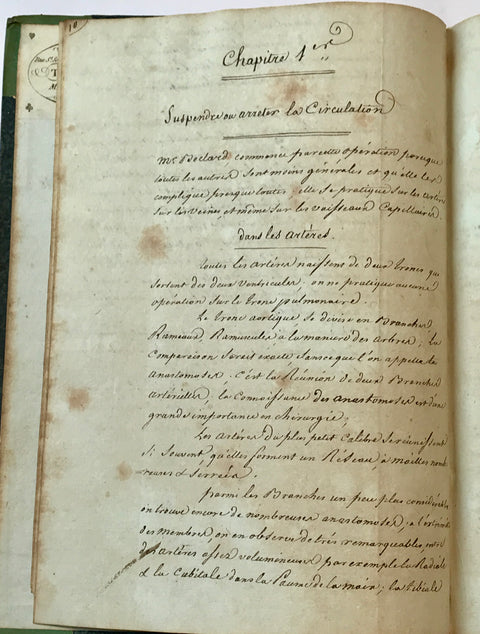 10
Chapitre 1er
Suspendre ou arreter la Circulation
Mr. Béclard commence par cette opération parceque
toutes les autres sont moins générales et qu'elle les
complique presque toutes. elle se pratique sur les artères
sur les veines, et même sur les vaisseaux Capillaires.
dans les artères.
toutes les artères naissent de deux troncs qui
sortent des deux ventricules; on ne pratique aucune
opération sur le tronc pulmonaire.
Le tronc aortique se divise en Branches
Rameaux, Ramuscules à la manière des arbres; la
comparaison serait exacte sans ce que l'on appelle les
anastomoses. C'est la Réunion de deux Branches
artérielles, la connaissance des anastomoses est d'une
grande importance en chirurgie;
Les artères du plus petit Calibre se réunissent
si souvent qu'elles forment un Réseau, à mailles nomb
reuses & serrées.
parmi les Branches un peu plus considérables
on trouve encore de nombreuses anastomoses, a
des membres, on en observe de très remarquables, entre
des artères assez volumineuses par exemple la Radiale
& la Cubitale dans la Paume de la main; la tibiale